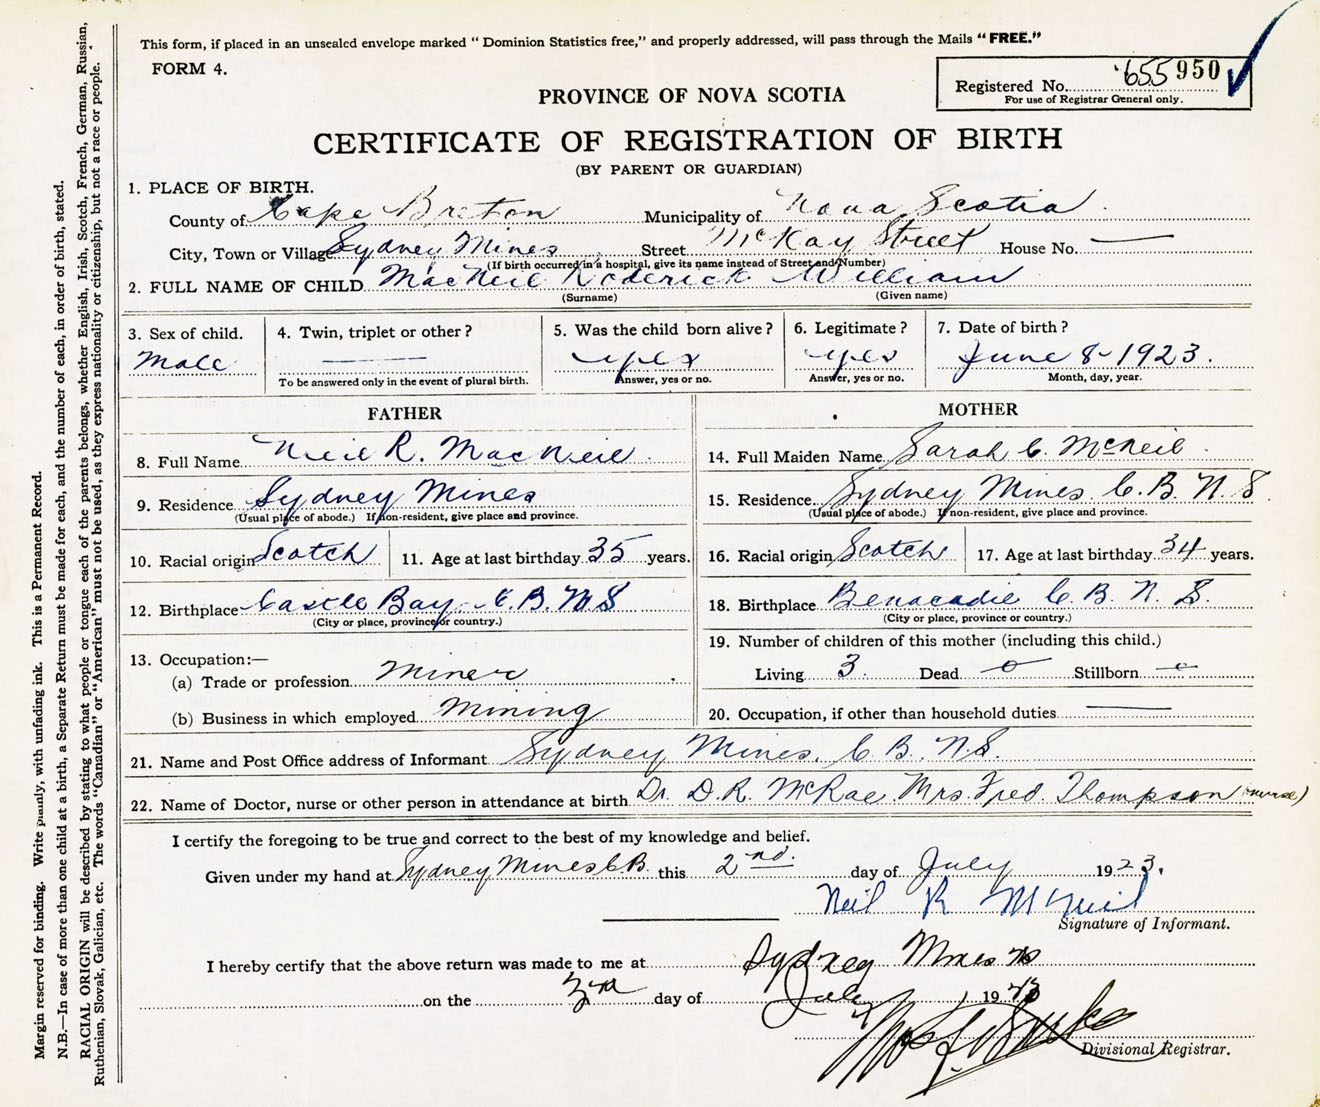 This form, if placed in an unsealed envelope marked "Dominion Statistics free," and properly addressed, will pass through the Mails "FREE."
FORM 4.
Registered No. 655950
For use of Registrar General only.
PROVINCE OF NOVA SCOTIA
CERTIFICATE OF REGISTRATION OF BIRTH
(BY PARENT OR GUARDIAN)
1. PLACE OF BIRTH.
County of Cape Breton Municipality of Nova Scotia
City, Town or Village Sydney Mines Street McKay Street House No. —
(If birth occurred in a hospital, give its name instead of Street and Number)
2. FULL NAME OF CHILD MacNeil Roderick William
(Surname) (Given name)
3. Sex of child. 4. Twin, triplet or other? 5. Was the child born alive? 6. Legitimate? 7. Date of birth?
Male — yes yes June 8-1923.
To be answered only in the event of plural birth. Answer, yes or no. Answer, yes or no. Month, day, year.
FATHER MOTHER
8. Full Name Neil R. MacNeil 14. Full Maiden Name Sarah C. McNeil
9. Residence Sydney Mines 15. Residence Sydney Mines C.B. N.S
(Usual place of abode.) If non-resident, give place and province. (Usual place of abode.) If non-resident, give place and province.
10. Racial origin Scotch 11. Age at last birthday 35 years. 16. Racial origin Scotch 17. Age at last birthday 34 years.
12. Birthplace Castle Bay C.B. N.S 18. Birthplace Benacadie C.B. N.S.
(City or place, province or country.) (City or place, province or country.)
13. Occupation:— 19. Number of children of this mother (including this child.)
(a) Trade or profession Miner Living 3. Dead 0 Stillborn 0
(b) Business in which employed Mining 20. Occupation, if other than household duties —
21. Name and Post Office address of Informant Sydney Mines, C.B. N.S.
22. Name of Doctor, nurse or other person in attendance at birth Dr. D.R. McRae. Mrs Fred. Thompson (nurse)
I certify the foregoing to be true and correct to the best of my knowledge and belief.
Given under my hand at Sydney Mines C.B. this 2nd. day of July 1923.
Neil R McNeil
Signature of Informant.
I hereby certify that the above return was made to me at Sydney Mines
on the 3rd day of July 19
Divisional Registrar.
Margin reserved for binding. Write plainly, with unfading ink. This is a Permanent Record.
N.B.—In case of more than one child at a birth, a Separate Return must be made for each, and the number of each, in order of birth, stated.
RACIAL ORIGIN will be described by stating to what people or tongue each of the parents belongs, whether English, Irish, Scotch, French, German, Russian,
Ruthenian, Slovak, Galician, etc. The words "Canadian" or "American" must not be used, as they express nationality or citizenship, but not a race or people.